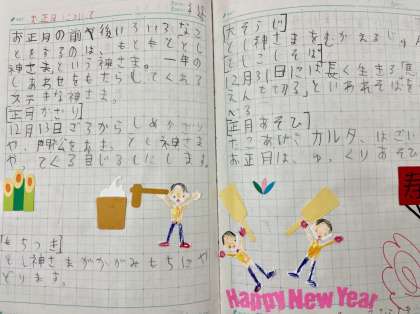 お正月について
お正月の前や後いろいろなこ
とをするのは、もともととし
神さまという神さま。一年の
しあわせをもたらしてくれる
ステキな神さま。
[正月かざり]
12月13日ごろからしめかざり
や、門松をおき、とし神さま
や、てくる目じるしにします。
[もちつき]
とし神さまがかがみもちにや
どります。
[大そうじ]
とし神さまをむかえる
[としこしそば]
12月31日には長く生きる
えんもちつ、といわれそばを
べる
[正月あそび]
たこあげ、カルタ、はねつ
お正月は、ゆっくりあそび
Happy New Year